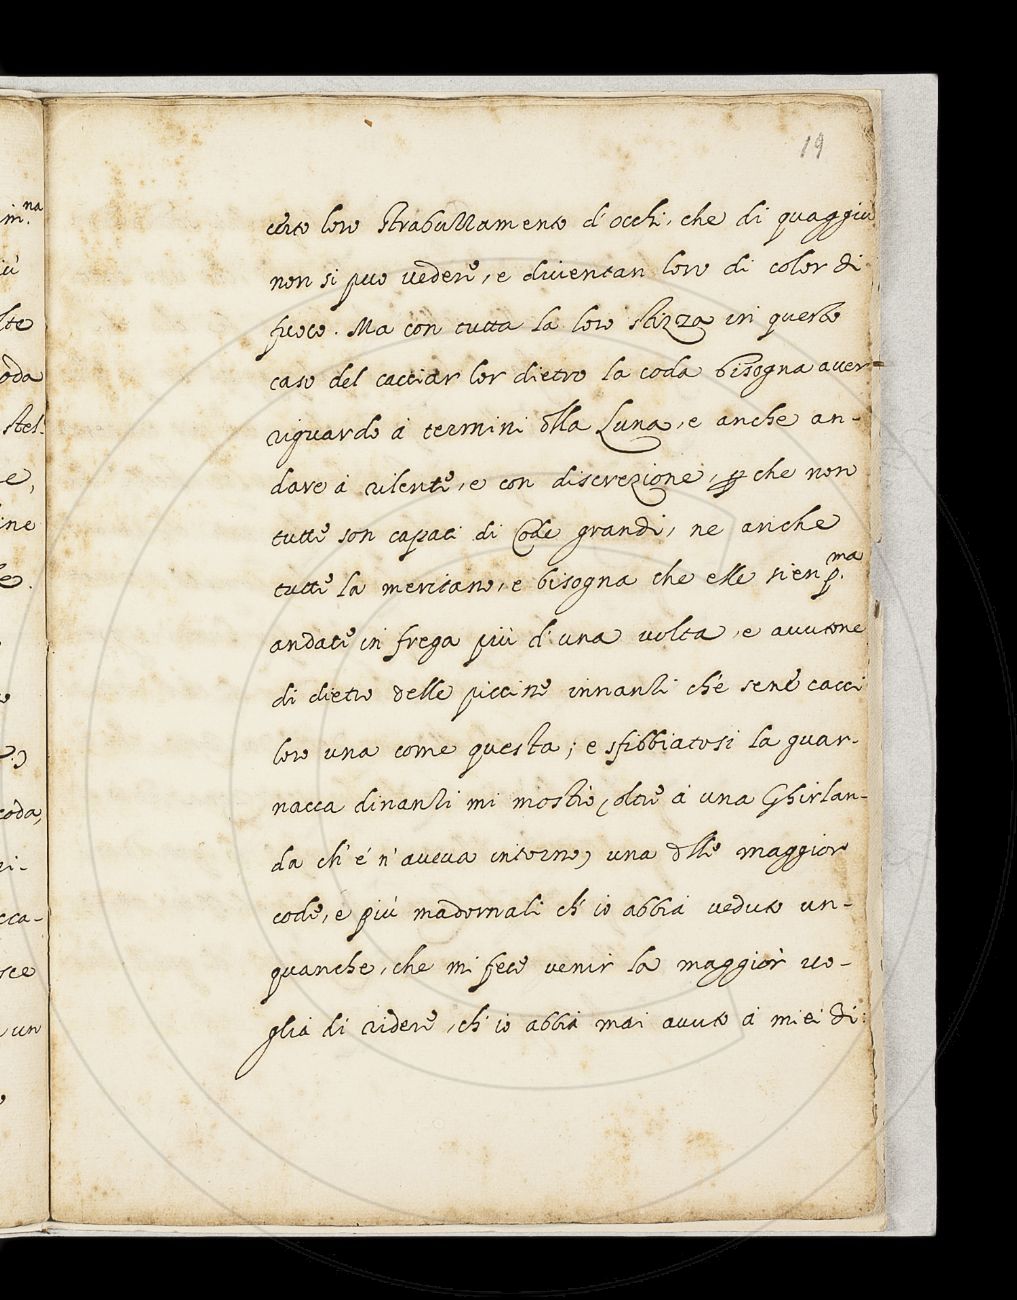 19
certo loro strabuzzamento d'occhi, che di quaggiu
non si puo vedere, e diventan loro di color di
fuoco. Ma con tutta la loro stizza in questo
caso del cacciar lor dietro la coda bisogna aver
riguardo à termini dlla Luna, e anche an-
dare à rilente, e con discrezione, p che non
tutte son capaci di Code grandi, ne anche
tutte la meritano, e bisogna che elle sien p.ma
andate in frega più d'una volta, e avutone
di dietro delle piccine innanzi che sene cacci
loro una come questa; e sfibbiatosi la guar-
nacca dinanzi mi mostrò, oltre à una Ghirlan-
da ch'e' n'aveva intorno, una dlle maggiori
code, e più madornali ch'io abbia veduto un-
quanche, che mi fece venir la maggior vo-
glia di ridere, ch'io abbia mai avuto à miei di:
in.na
iù
lte
oda
stel-
e,
ine
le.
coda,
ri-
cca-
sce
un